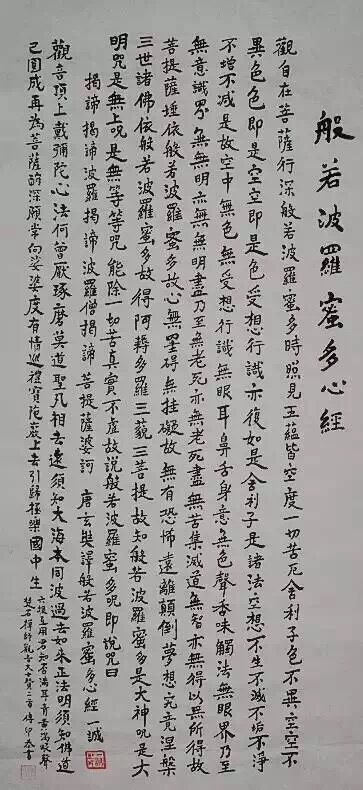 般若波羅蜜多心經
觀自在菩薩行深般若波羅蜜多時照見五蘊皆空度一切苦厄舍利子色不異空空不
異色色即是空空即是色受想行識亦復如是舍利子是諸法空想不生不滅不垢不淨
不增不減是故空中無色無受想行識無眼耳鼻舌身意無色聲香味觸法無眼界乃至
無意識界無無明亦無無明盡乃至無老死亦無老死盡無苦集滅道無智亦無得以無所得故
菩提薩埵依般若波羅蜜多故心無罣碍無挂礙故無有恐怖遠離顛倒夢想究竟涅槃
三世諸佛依般若波羅蜜多故得阿耨多羅三藐三菩提故知般若波羅蜜多是大神咒是大
明咒是無上咒是無等等咒能除一切苦真實不虛故說般若波羅蜜多呪即說咒曰
揭諦揭諦波羅揭諦波羅僧揭諦菩提薩婆訶 唐玄奘譯般若波羅蜜多心經 一誠
觀音頂上戴彌陀心法何曾厭琢磨莫道聖凡相去遠須知大海本同波過去如來正法明須知佛道
已圓成再為菩薩酧深願常向娑婆度有情巡禮寶陀巖上去引歸極樂國中生
六根互用君知否滿耳青聲
楚石禪師觀音大士贊二首 傳印敬書